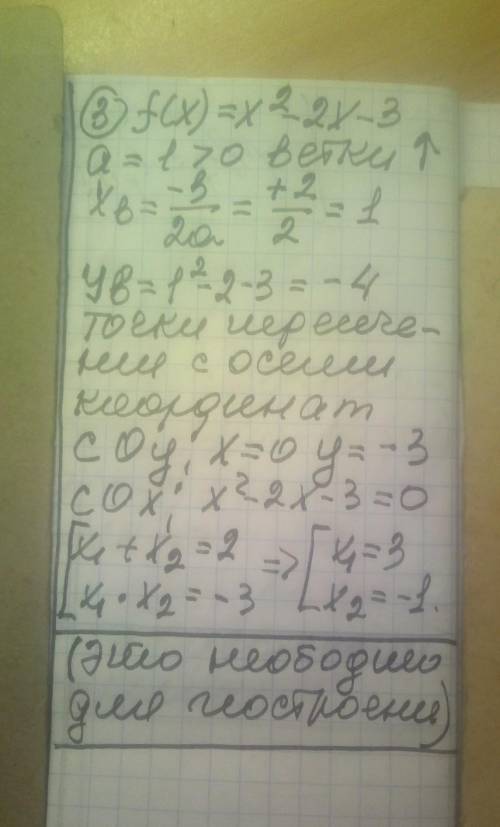 ③ f(x) = x² - 2x - 3
a = 1 > 0 ветки ↑
xв = -в/2a = +2/2 = 1
yв = 1² - 2 - 3 = -4
точки пересече-
ния с осями
координат
с Oy, x = 0 y = -3
с Ox, x² - 2x - 3 = 0
[x₁ + x₂ = 2 => [x₁ = 3
x₁ · x₂ = -3 x₂ = -1.
(это неободимо
для построени)